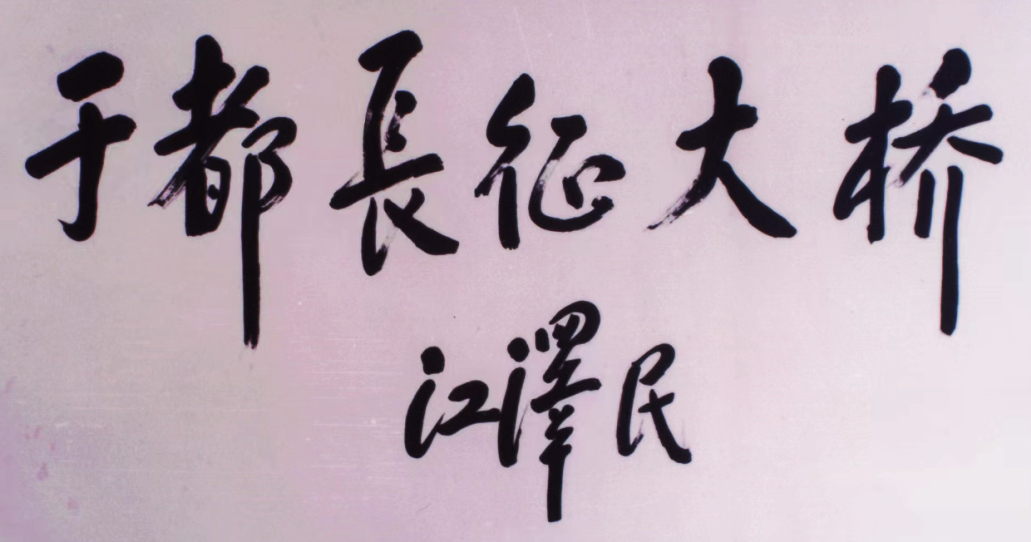 于都長征大桥
江澤民